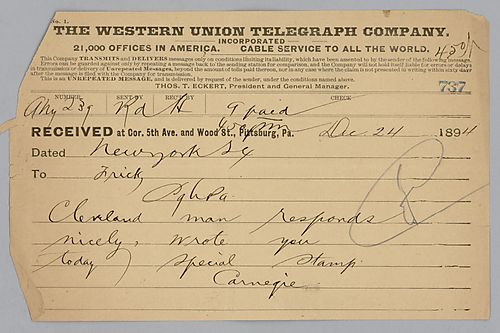 No. 1.
THE WESTERN UNION TELEGRAPH COMPANY.
INCORPORATED
21,000 OFFICES IN AMERICA. CABLE SERVICE TO ALL THE WORLD.
This Company TRANSMITS and DELIVERS messages only on conditions limiting its liability, which have been assented to by the sender of the following message.
Errors can be guarded against only by repeating a message back to the sending station for comparison, and the Company will not hold itself liable for errors or delays
in transmission or delivery of Unrepeated Messages, beyond the amount of tolls paid thereon, nor in any case where the claim is not presented in writing within sixty days
after the message is filed with the Company for transmission.
This is an UNREPEATED MESSAGE, and is delivered by request of the sender, under the conditions named above.
THOS. T. ECKERT, President and General Manager.
737
NUMBER SENT BY REC'D BY CHECK
239 Kd H 9 paid
RECEIVED at Cor. 5th Ave. and Wood St., Pittsburg, Pa. Dec 24 1894
Dated New york 24
To Frick
Pgh Pa.
Cleveland man responds
nicely, wrote you
today special stamp
Carnegie